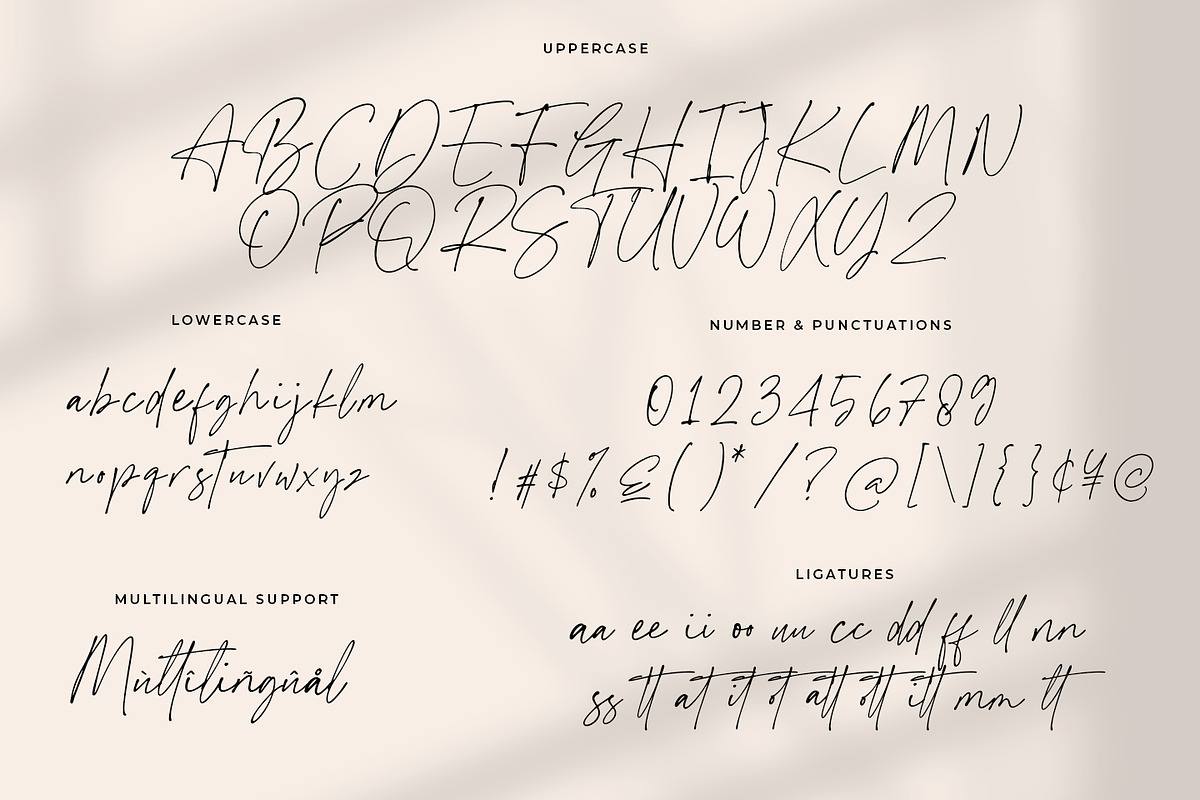 UPPERCASE
ABCDEFGHIJKLMN
OPQRSTUVWXYZ
LOWERCASE
abcdefghijklm
nopqrstuvwxyz
NUMBER & PUNCTUATIONS
0123456789
!#$%£()*/?@[\]{}¢¥©
MULTILINGUAL SUPPORT
Mùltîliñgûål
LIGATURES
aa ee ii oo uu cc dd ff ll nn
ss tt at it ot att ott itt mm tt